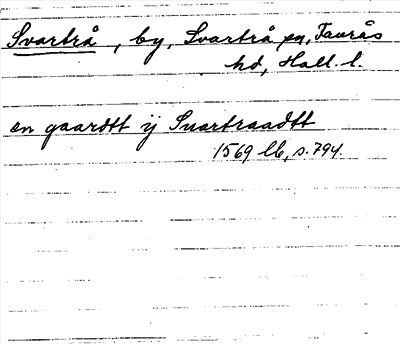 Svartrå, by, Svartrå sn, Faurås
hd, Hall. l.
en gaardtt ij Suortraadtt
1569 lb, s. 794.